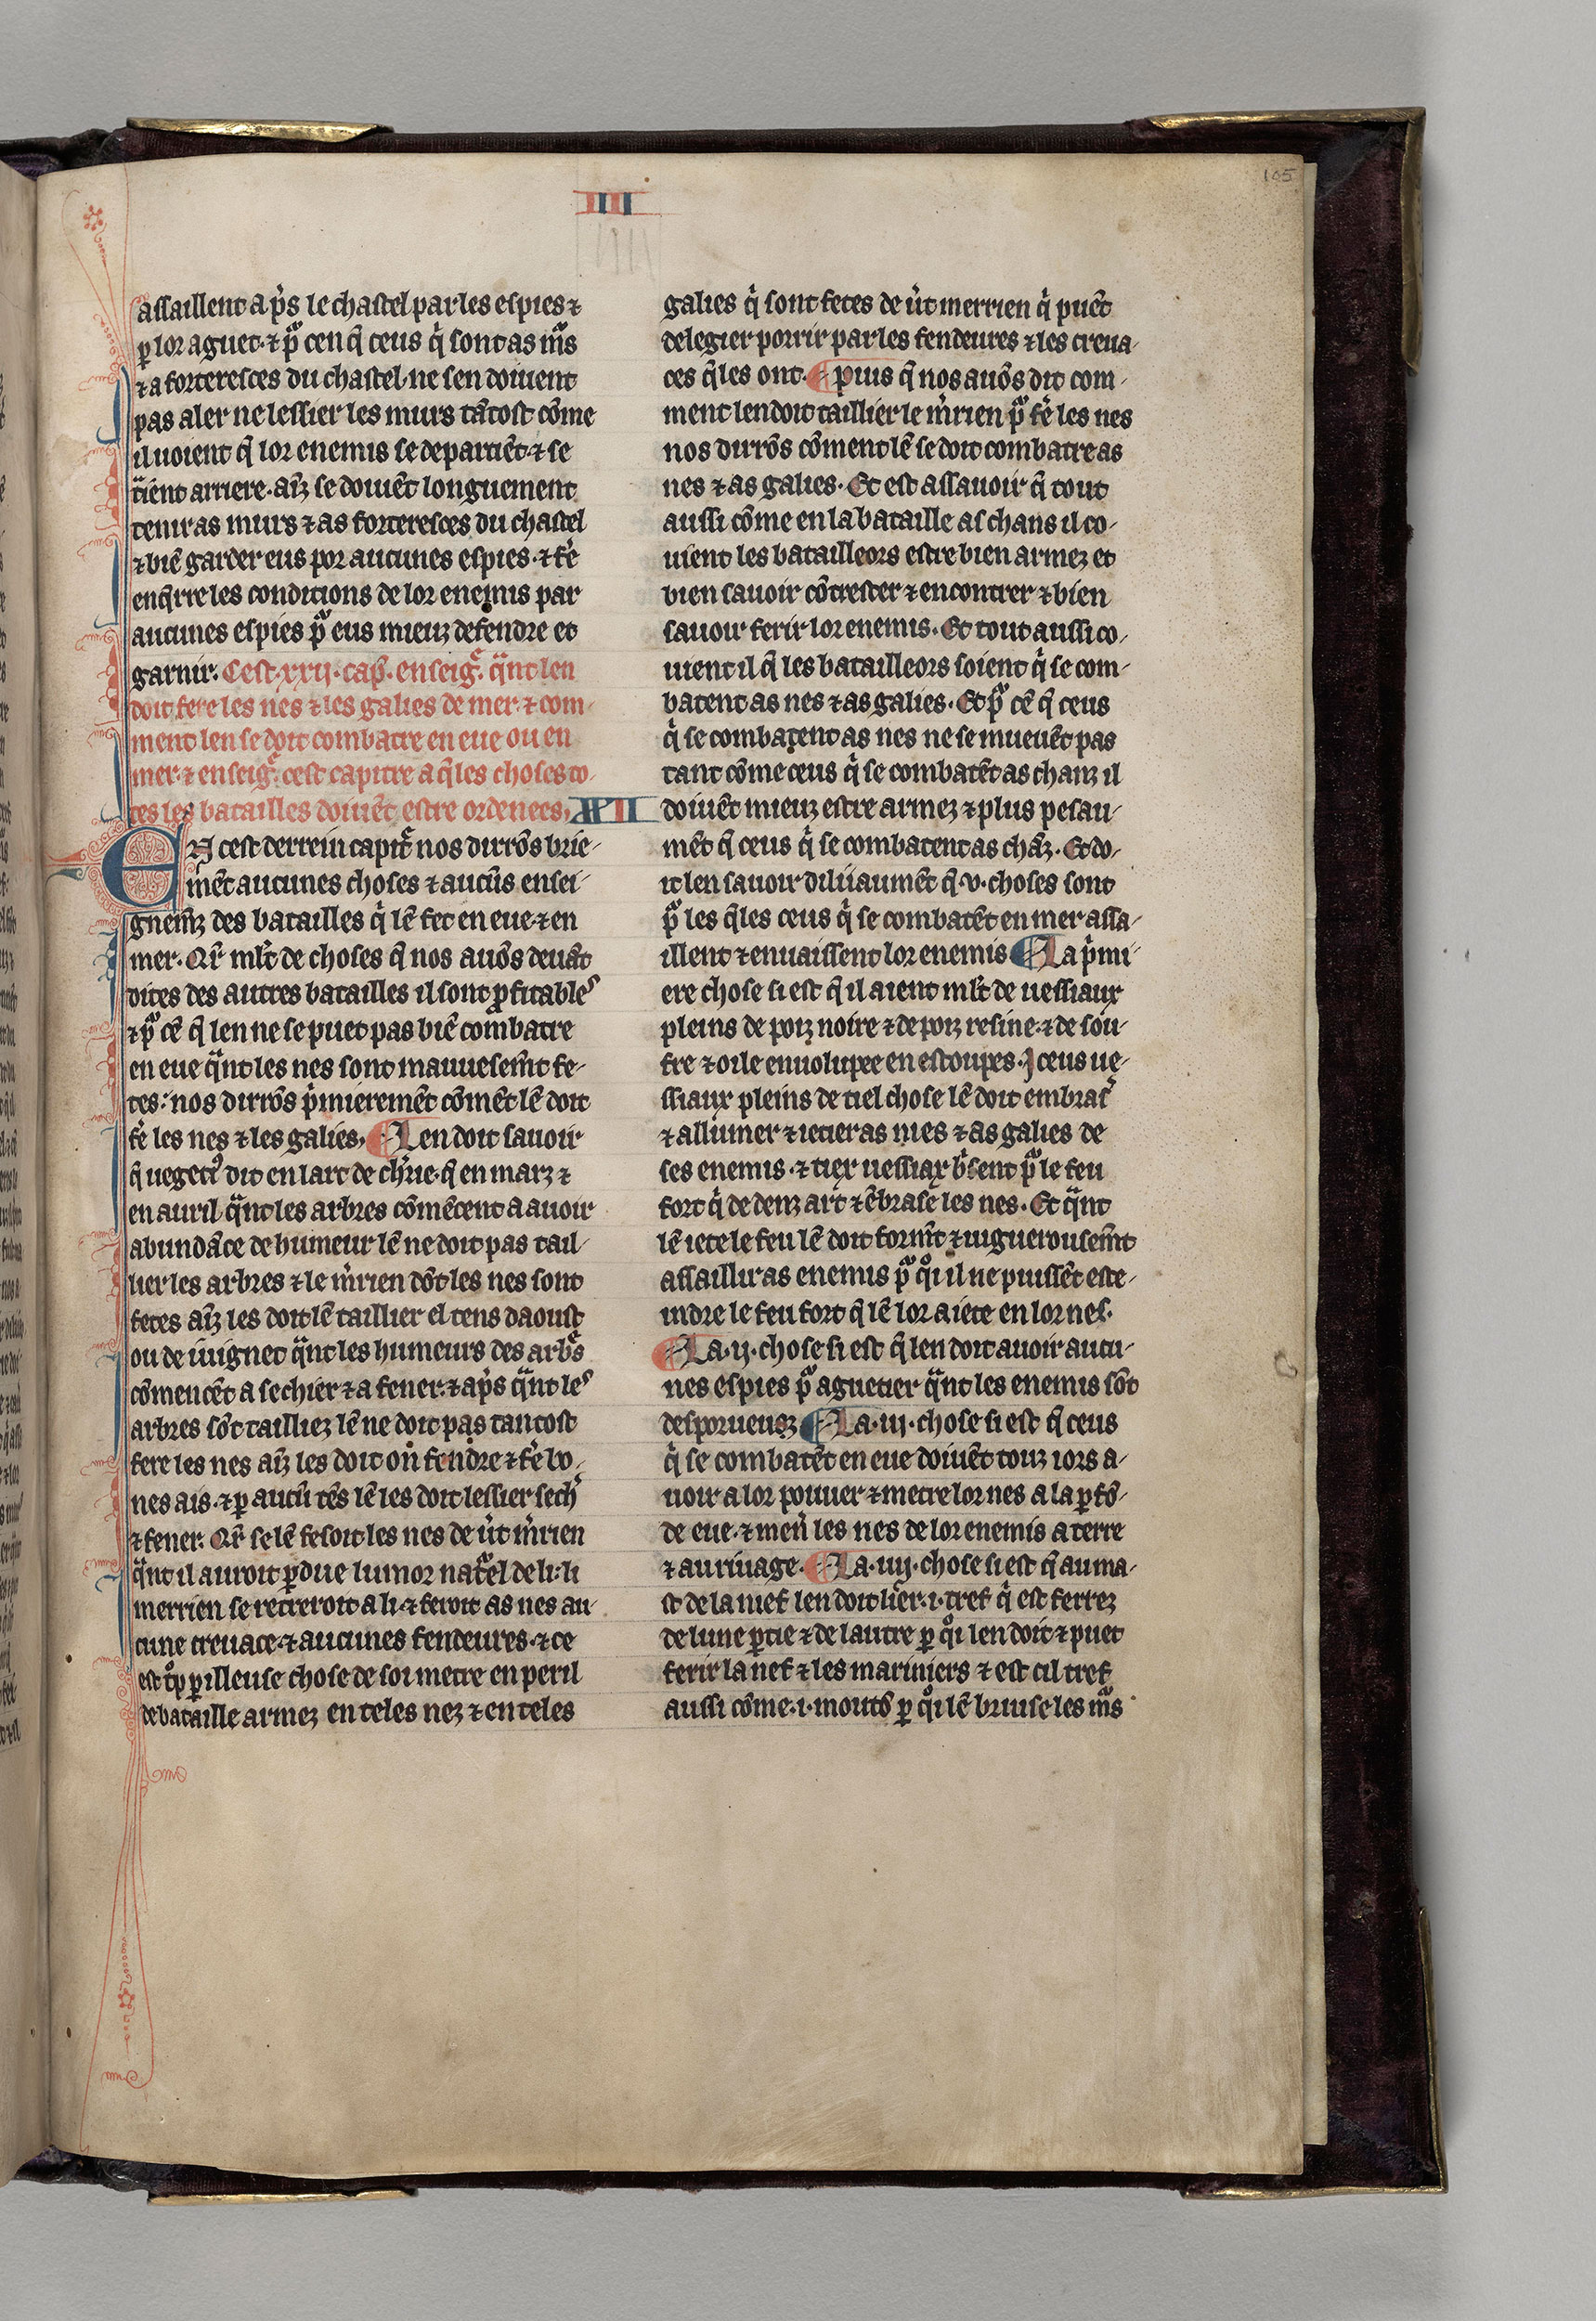 105
IIII
assaillent ap̾s le chastel par les espies ⁊
ꝑ lor aguet. ⁊ pͣ cen q̃ ceus q̾ sont as mͣs
⁊ a forteresces du chastel. ne sen doiuent
pas aler ne lessier les murs tãtost cõme
il uoient q̃ lor enemis se departẽt. ⁊ se
tiẽnt arriere. aĩz se doiuẽt longuement
tenir as murs ⁊ as forteresces du chastel
⁊ biẽ garder eus por aucunes espies. ⁊ fẽ
enq̃rre les conditions de lor enemis par
aucunes espies pͣ eus mieuz defendre et
garnir. Cest. xxij. cap̃. enseig̃. qͣnt len
doit fere les nes ⁊ les galies de mer. ⁊ com-
ment len se doit combatre en eue ou en
mer. ⁊ enseig̃. cest capitre a q̃les choses to-
tes les batailles doiuẽt estre ordenees. XXII
EN cest derrein capit̃ nos dirrõs brie-
mẽt aucunes choses ⁊ aucũs ensei-
gnemz̃ des batailles q̾ lẽ fet en eue ⁊ en
mer. Qr̃ ml̃t de choses q̃ nos auõs deuãt
dites des autres batailles il sont ꝓfitables
⁊ pͣ cẽ q̃ len ne se puet pas biẽ combatre
en eue qͣnt les nes sont mauuesem̃t fe-
tes: nos dirrõs p̾mieremẽt cõmẽt lẽ doit
fẽ les nes ⁊ les galies. ¶ Len doit sauoir
q̃ uegeci⁹ dit en lart de ch̃rie. q̃ en marz ⁊
en auril. qͣnt les arbres cõmẽcent a auoir
abundãce de humeur lẽ ne doit pas tail-
lier les arbres ⁊ le m̾rien dõt les nes sont
fetes aĩz les doit lẽ taillier el tens daoust
ou de iuignet qͣnt les humeurs des arbs̃
cõmencẽt a sechier ⁊ a fener. ⁊ ap̾s qͣnt les
arbres sõt tailliez lẽ ne doit pas tantost
fere les nes aĩz les doit on fendre ⁊ fẽ bo-
nes ais. ⁊ ꝑ aucũ tẽs lẽ les doit lessier sech̾
⁊ fener. Qr̃ se lẽ fesoit les nes de u̾t m̾rien
qͣnt il auroit ꝑdue lumor natͣel de li. li
merrien se retreroit a li. ⁊ feroit as nes au-
cune creuace. ⁊ aucunes fendeures. ⁊ ce
est t͛p ꝑilleuse chose de soi metre en peril
de bataille armez en teles nez ⁊ en teles
galies q̾ sont fetes de u̾t merrien q̾ puẽt
de legier porrir par les fendeures ⁊ les creua-
ces q̃les ont. ¶ Puis q̃ nos auõs dit com-
ment len doit taillier le m̾rien pͣ fẽ les nes
nos dirrõs cõment lẽ se doit combatre as
nes ⁊ as galies. Et est assauoir q̃ tout
aussi cõme en la bataille as chans il co-
uient les batailleors estre bien armez et
bien sauoir cõtrester ⁊ encontrer ⁊ bien
sauoir ferir lor enemis. Et tout aussi co-
uient il q̃ les batailleors soient q̾ se com-
batent as nes ⁊ as galies. Et pͣ cẽ q̃ ceus
q̾ se combatent as nes ne se mueuẽt pas
tant cõme ceus q̾ se combatẽt as chanz il
doiuẽt mieuz estre armez ⁊ plus pesau-
mẽt q̃ ceus q̾ se combatent as chãz. Et do-
it len sauoir diliiaumẽt q̃. v. choses sont
pͣ les q̃les ceus q̾ se combatẽt en mer assa-
illent ⁊ enuaissent lor enemis ¶ La p̾mi-
ere chose si est q̃ il aient ml̃t de uessiaux
pleins de poiz noire ⁊ de poiz resine. ⁊ de sou-
fre ⁊ oile enuolupee en estoupes. Iceus ue-
ssiaux pleins de tiel chose lẽ doit embras̾
⁊ allumer ⁊ ietier as nies ⁊ as galies de
ses enemis. ⁊ tiex uessiax b̾sent pͣ le feu
fort q̾ dedenz art ⁊ ẽbrase les nes. Et qͣnt
lẽ iete le feu lẽ doit form̃t ⁊ uiguerousem̃t
assaillir as enemis pͣ qͦi il ne puissẽt este-
indre le feu fort q̃ lẽ lor a iete en lor nes.
¶ La. ij. chose si est q̃ len doit auoir aucu-
nes espies pͣ aguetier qͣnt les enemis sõt
desporueusz ¶ La. iij. chose si est q̃ ceus
q̾ se combatẽt en eue doiuẽt touz iors a-
uoir a lor pouuer ⁊ metre lor nes a la ꝑfõ-
de eue. ⁊ men̾ les nes de lor enemis a terre
⁊ au riuage. ¶ La. iiij. chose si est q̃ au ma-
st de la nief len doit lier. i. tref q̾ est ferrez
de lune ꝑtie ⁊ de lautre ꝑ qͦi len doit ⁊ puet
ferir la nef ⁊ les mariniers ⁊ est cil tref
aussi cõme. i. moutõ ꝑ qͦi lẽ bruise les mͣs